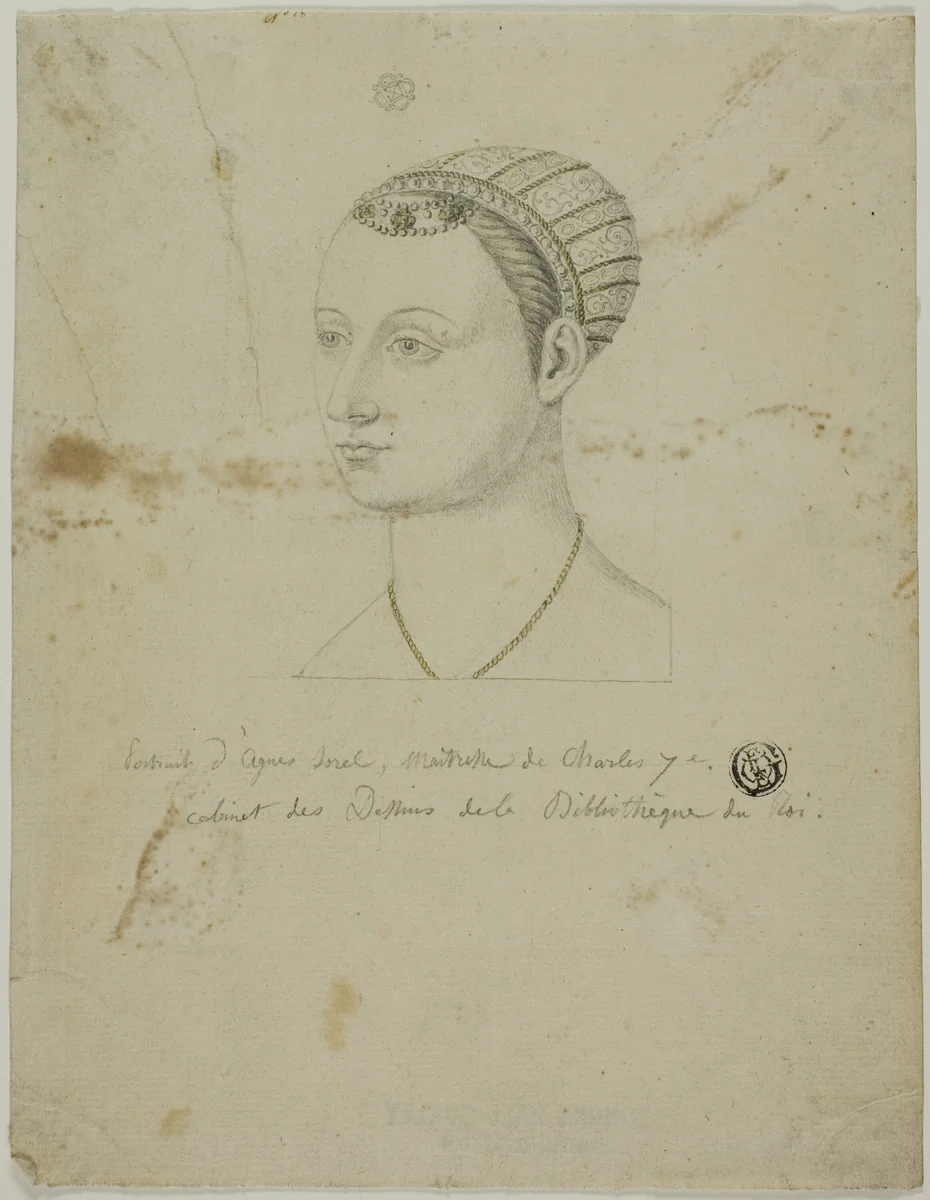 Portrait d'Agnes Sorel, Maitresse de Charles 7e.
cabinet des Dessins de la Bibliothèque du Roi.